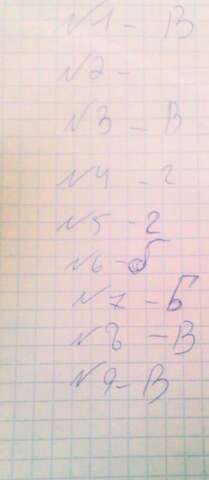 №1 - В
№2 -
№3 - В
№4 - г
№5 - г
№6 - б
№7 - Б
№8 - В
№9 - В